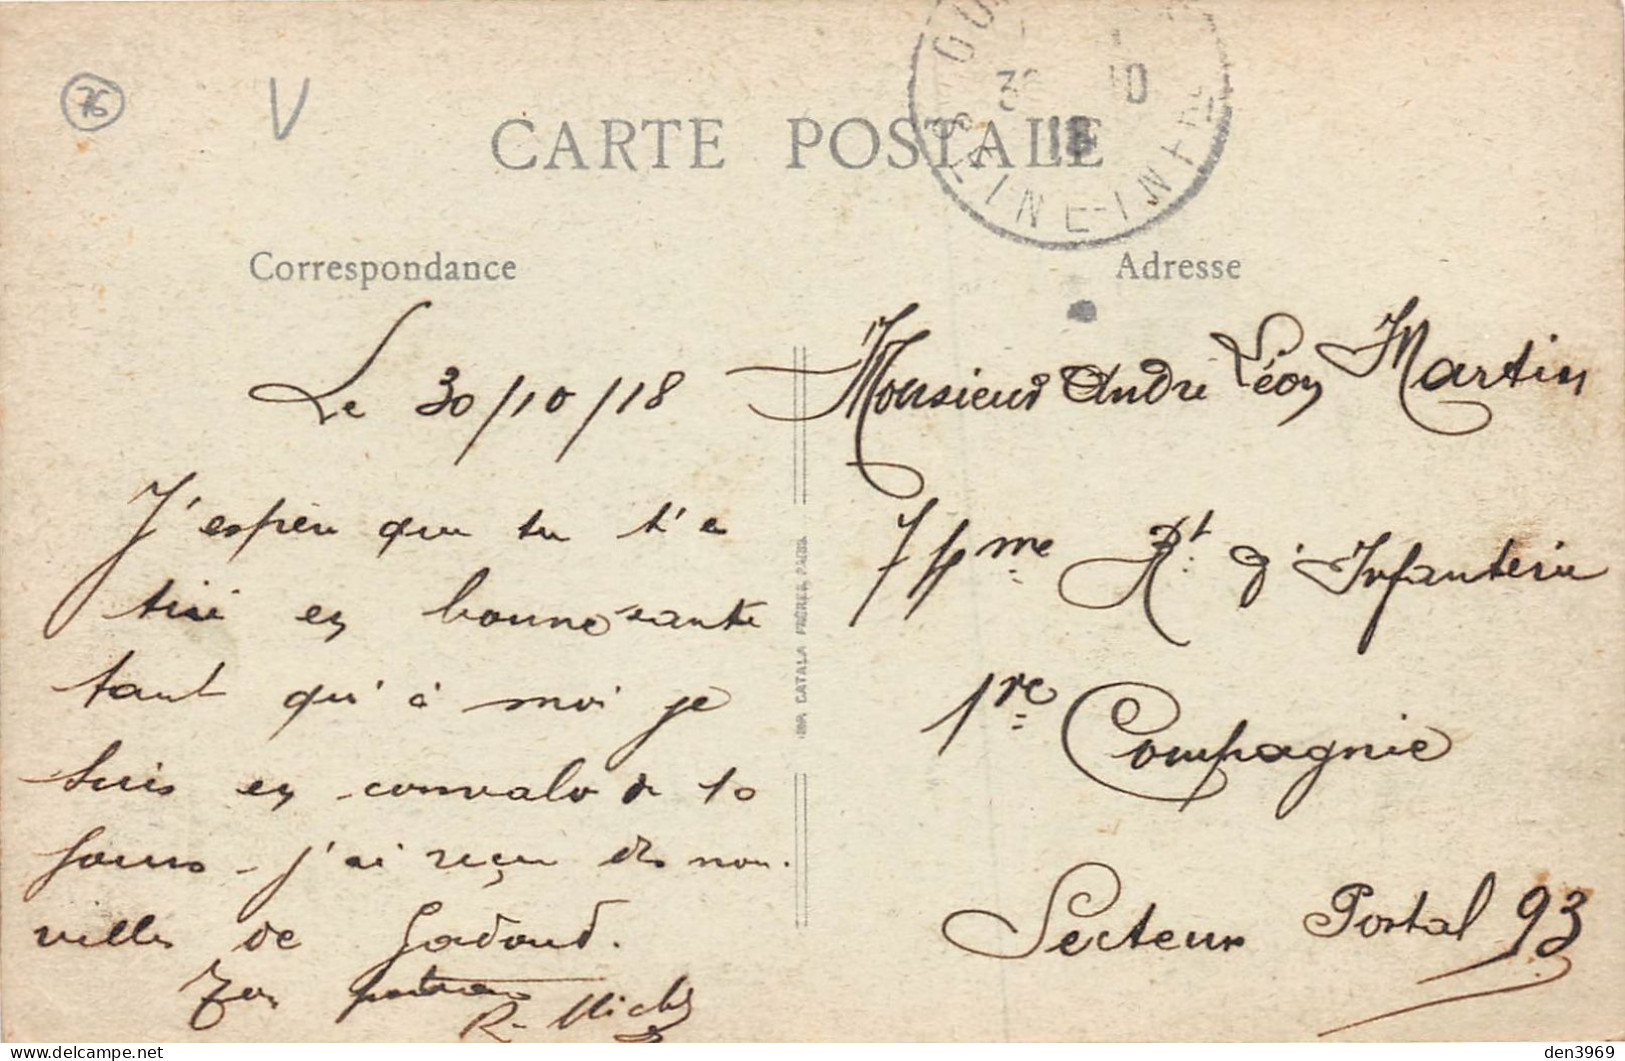 76
V
CARTE POSTALE
30 10
18
SEINE-INFRE
Correspondance
Adresse
Le 30/10/18
J'espère que tu t'e
tiré en bonne sante
tant qu'à moi je
suis en convalo de 10
Jours - j'ai reçu des nou.
velles de Gadoud.
Ton
R. Mich
IMP. CATALA FRÈRES, PARIS
Monsieur André Léon Martin
74me Rt d'Infanterie
1re Compagnie
Secteur Postal 93
den3969